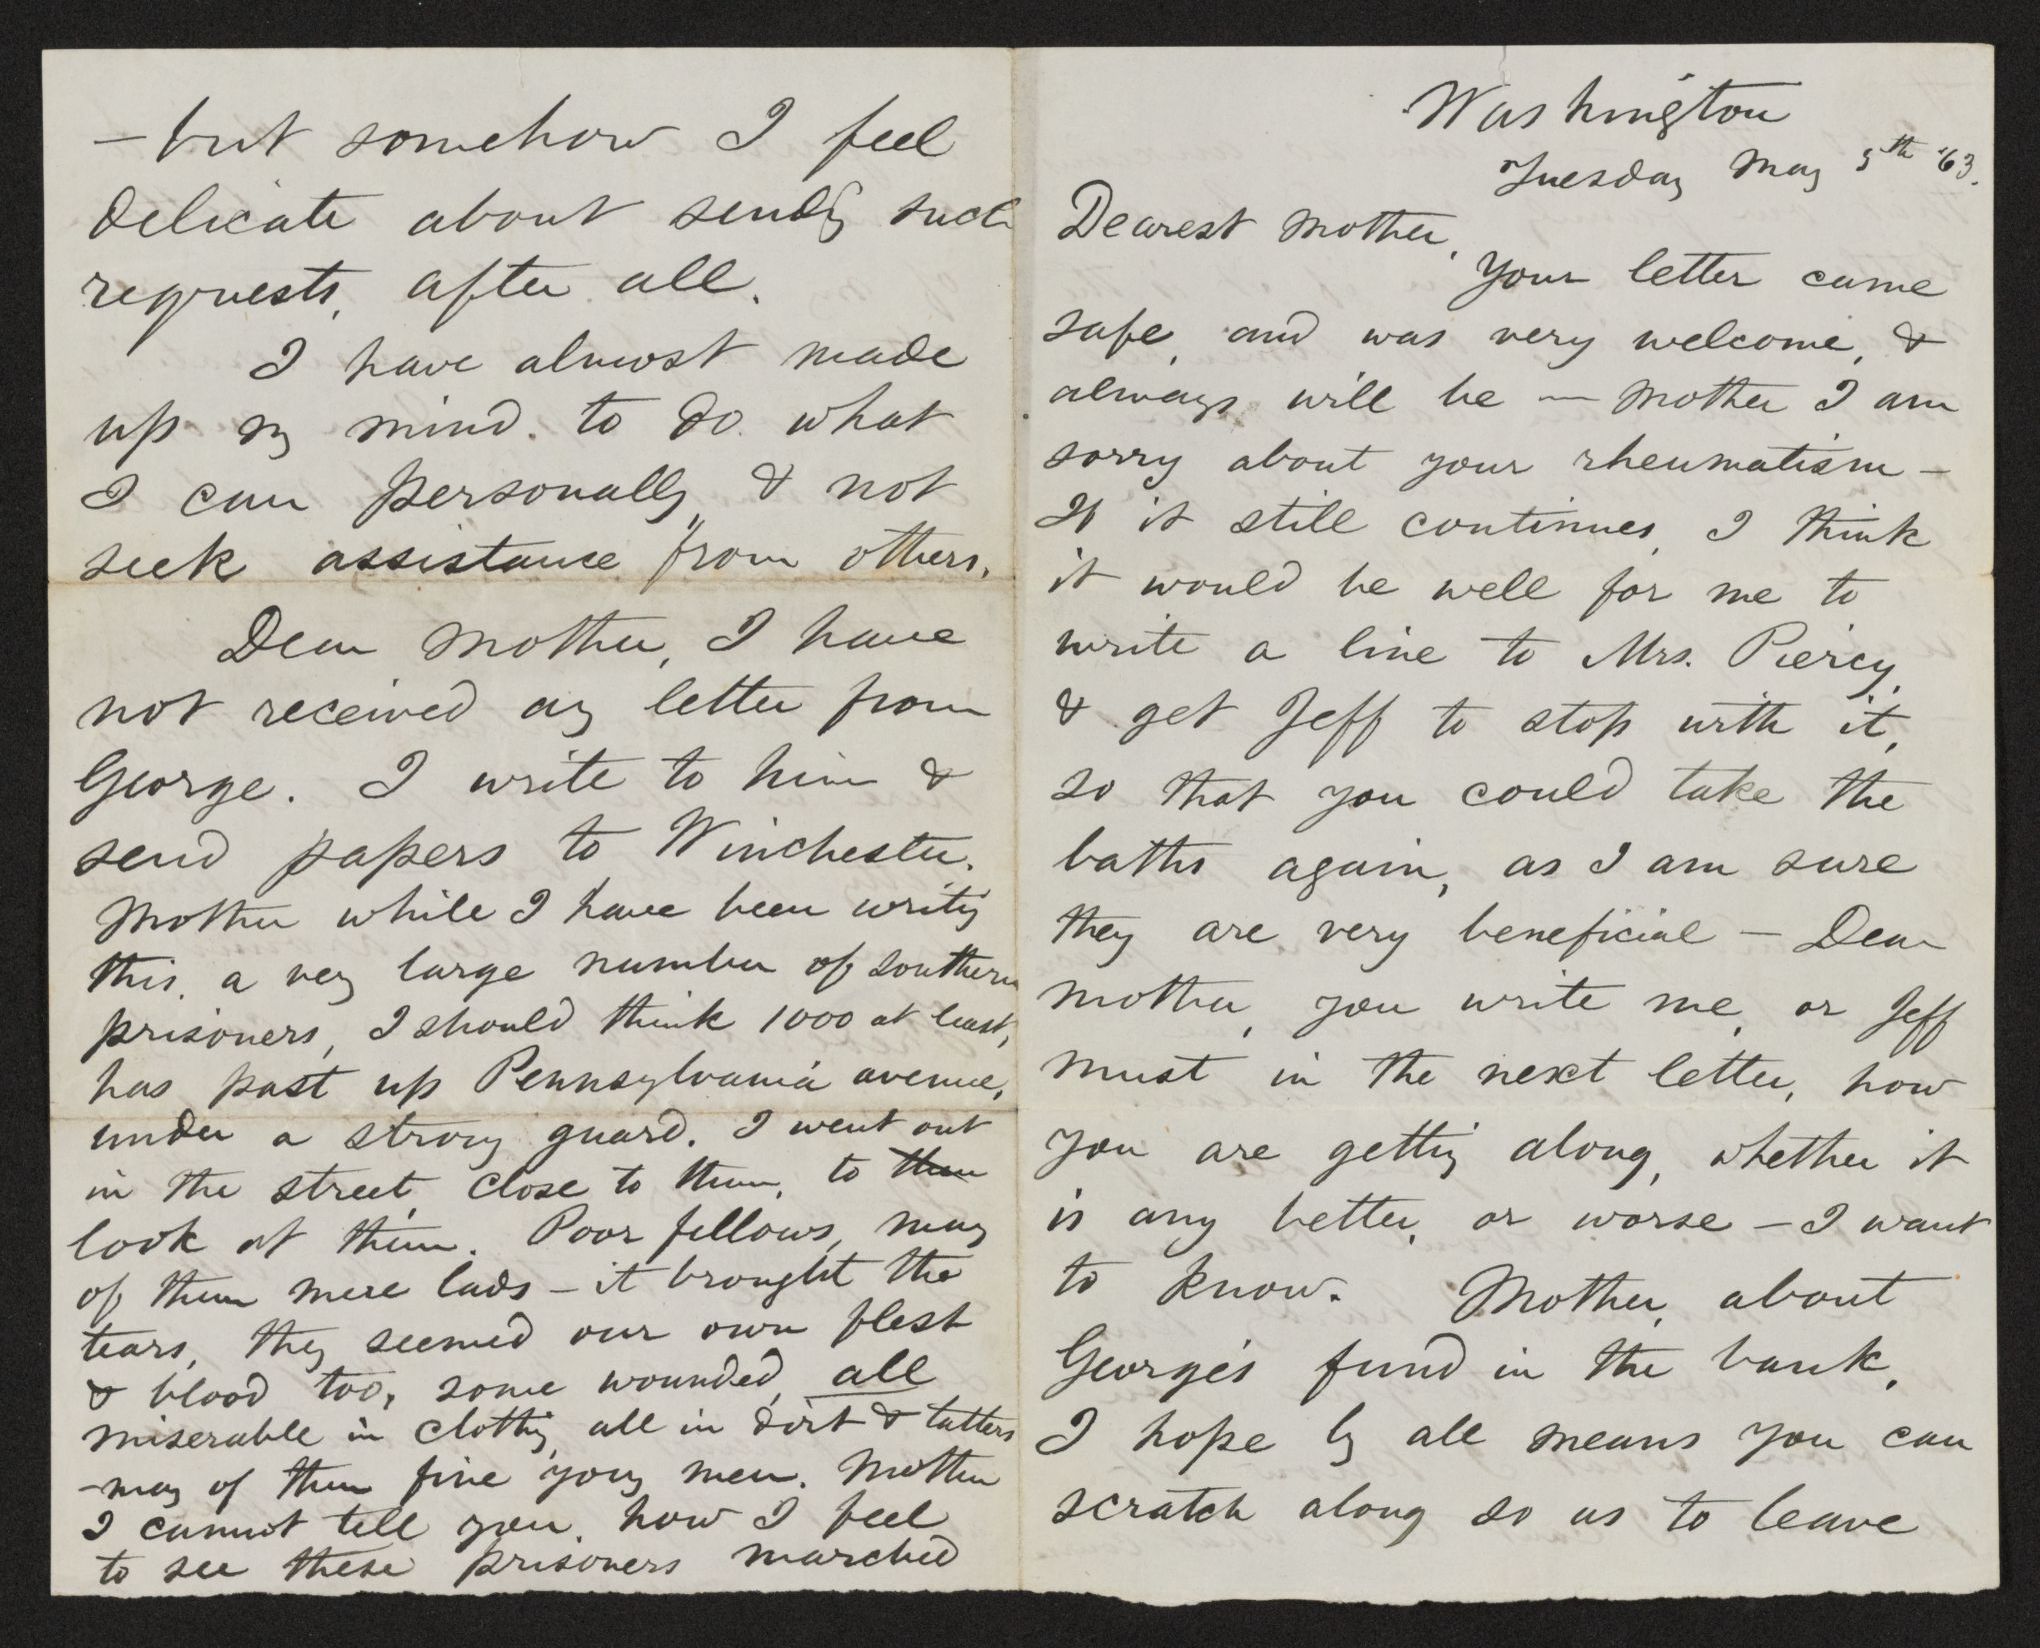 Washington
Tuesday May 5th '63.
Dearest Mother,
Your letter came
safe, and was very welcome, &
always will be — Mother I am
sorry about your rheumatism —
If it still continues, I think
it would be well for me to
write a line to Mrs. Piercy,
& get Jeff to stop with it,
so that you could take the
baths again, as I am sure
they are very beneficial — Dear
mother, you write me, or Jeff
must in the next letter, how
you are getting along, whether it
is any better, or worse — I want
to know. Mother, about
George's fund in the bank,
I hope by all means you can
scratch along so as to leave
— but somehow I feel
delicate about sending such
requests, after all.
I have almost made
up my mind to do what
I can personally, & not
seek assistance from others.
Dear mother, I have
not received any letter from
George. I write to him &
send papers to Winchester.
Mother while I have been writing
this, a very large number of southern
prisoners, I should think 1000 at least,
has past up Pennsylvania avenue,
under a strong guard. I went out
in the street, close to them, to them
look at them. Poor fellows, many
of them mere lads — it brought the
tears, they seemed our own flesh
& blood too, some wounded, all
miserable in clothing, all in dirt & tatters
— many of them fine young men. Mother
I cannot tell you, how I feel
to see these prisoners marched